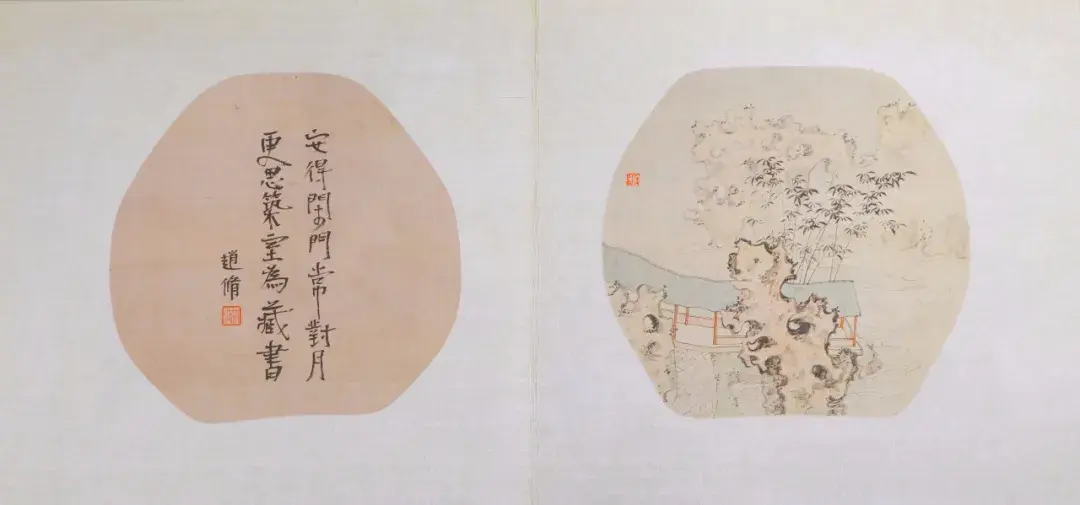 安得閉門常對月
更思築室為藏書
趙脩